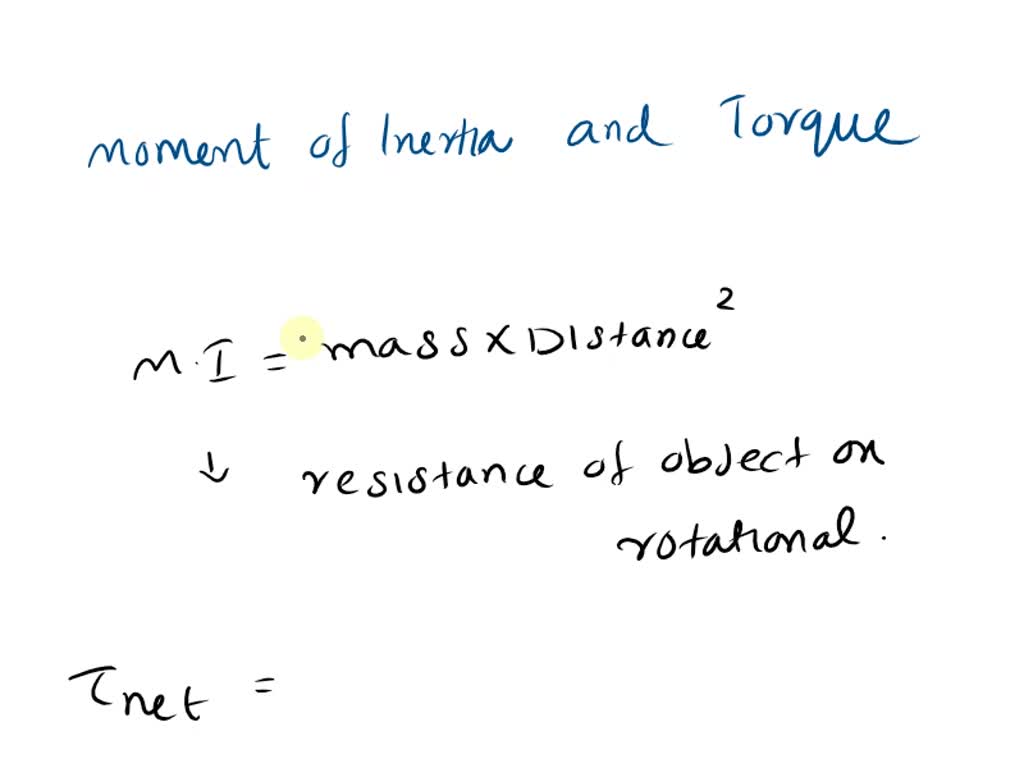 moment of Inertia and Torque
M.I = mass x Distance²
↓ resistance of object on
rotational.
τnet =